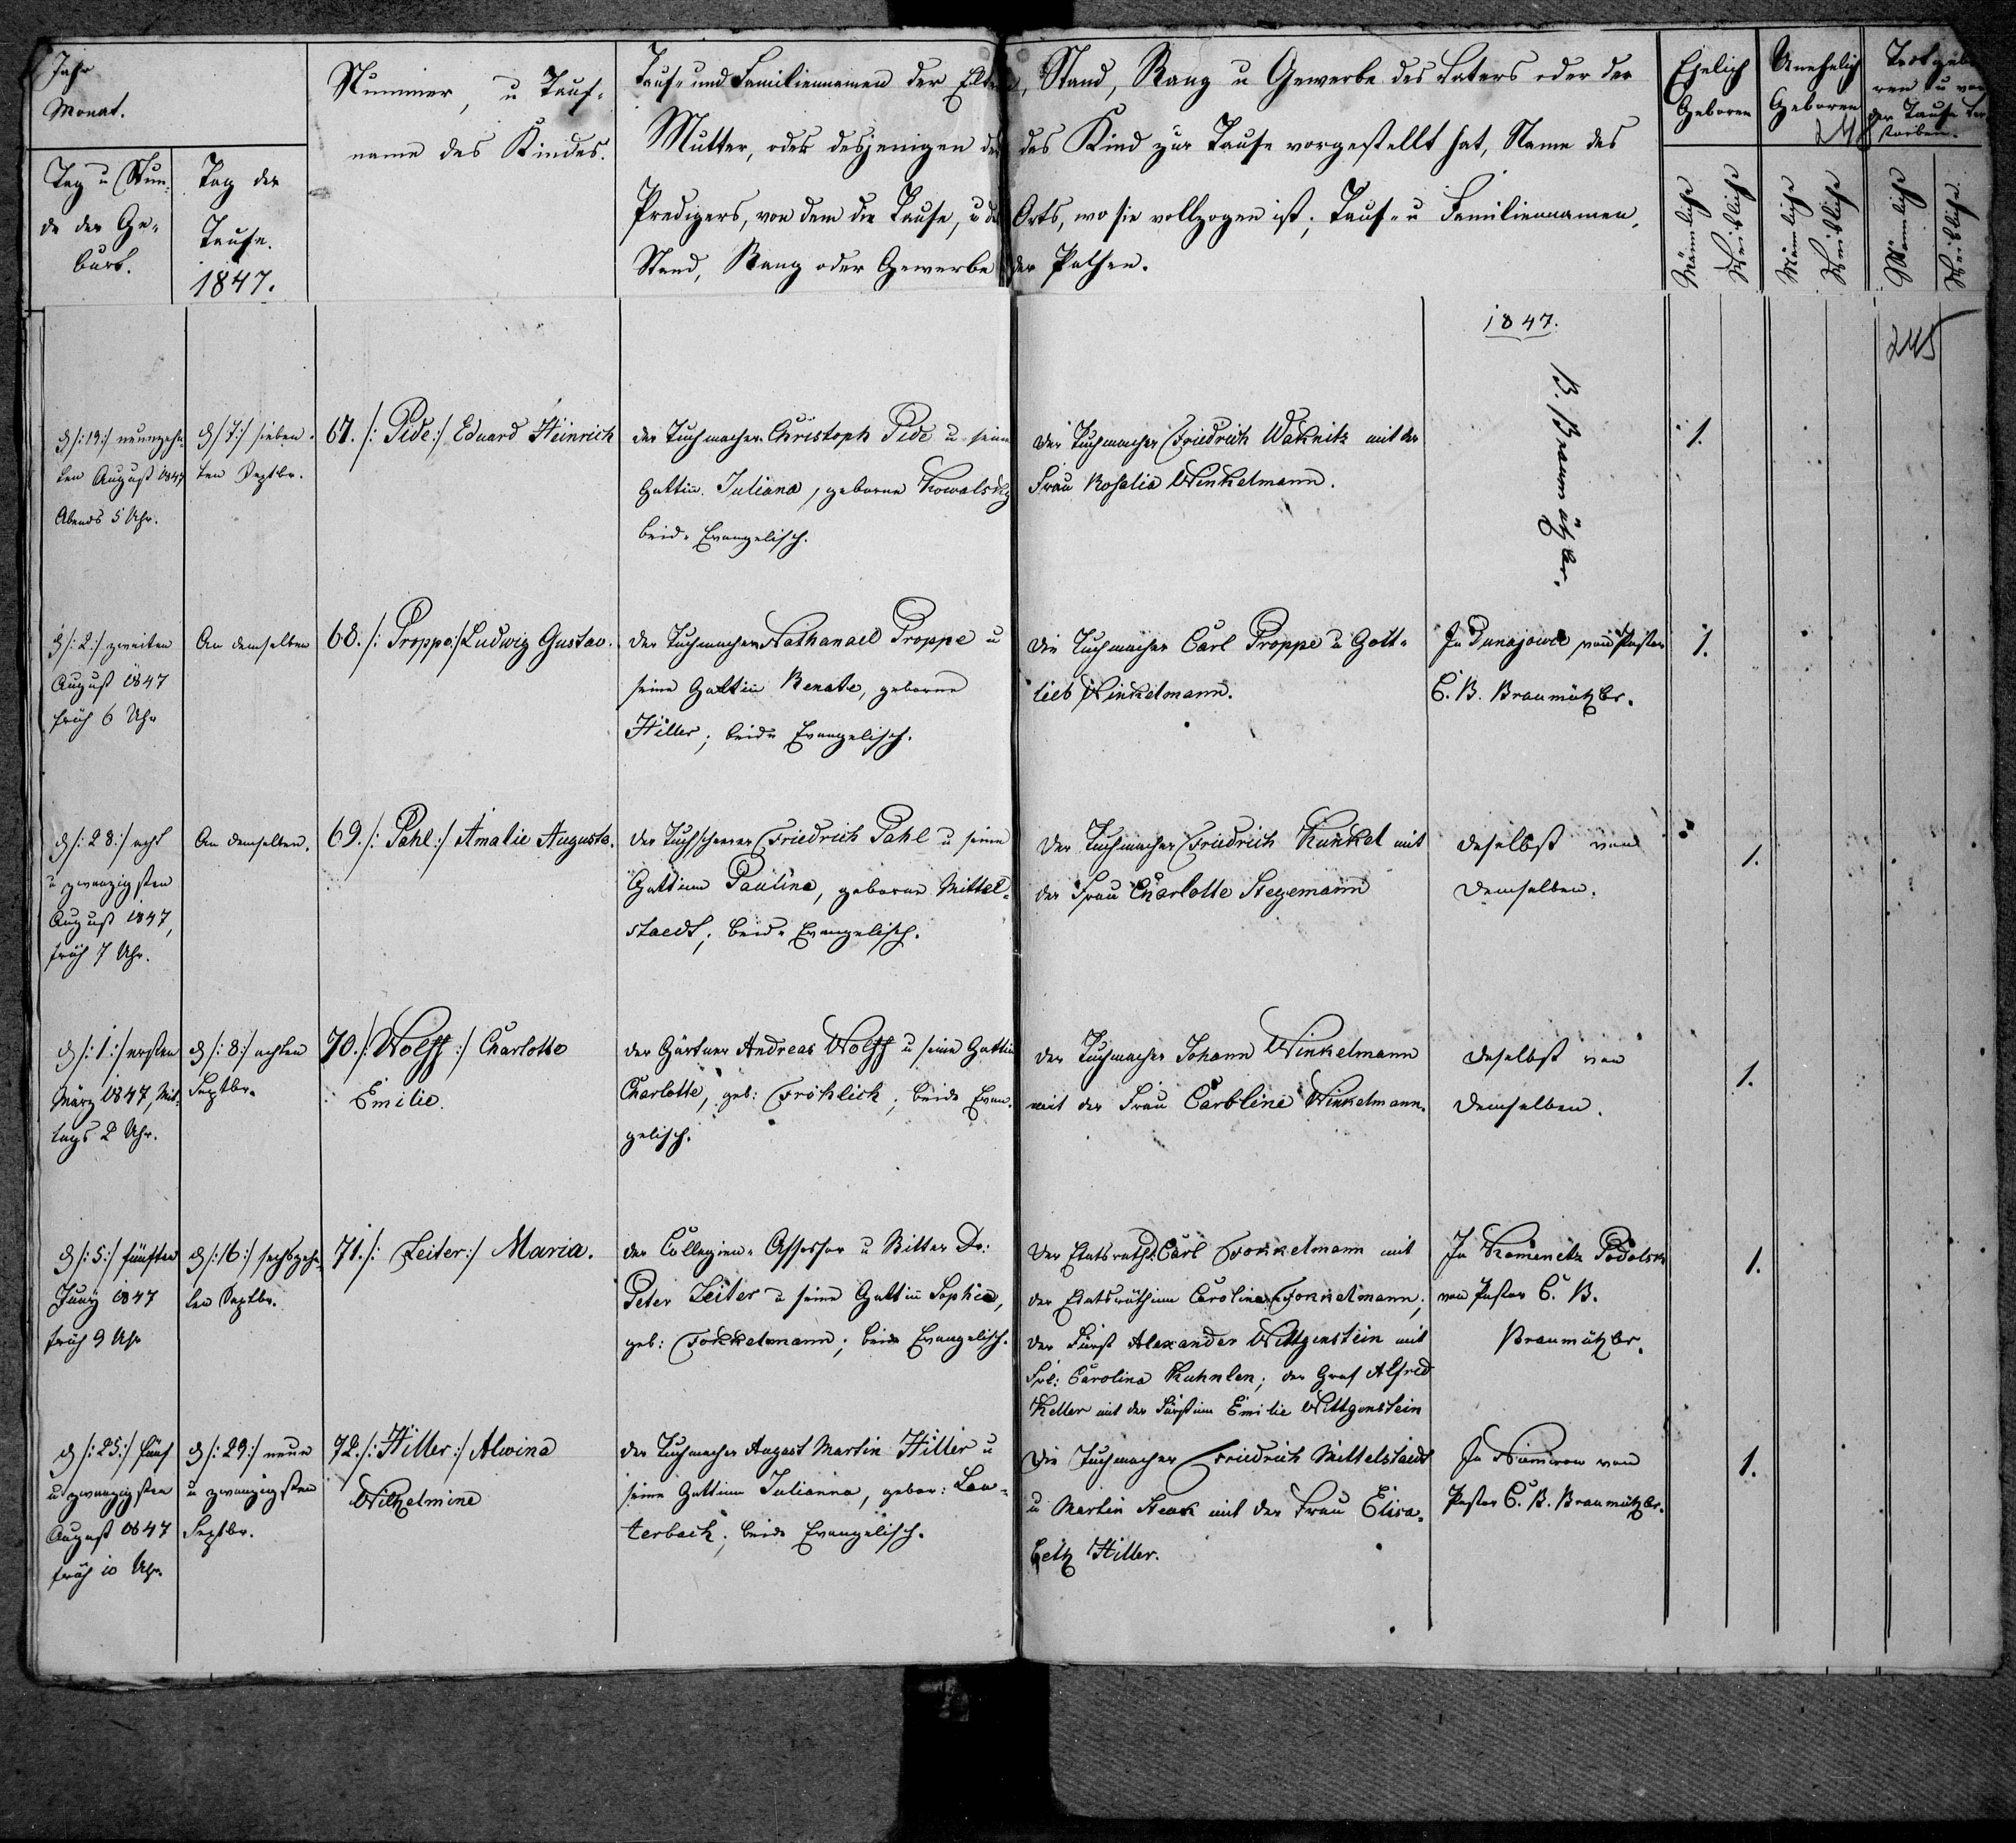 Jahr
Monat.
Tag u Stun-
de der Ge-
burt.
Tag der
Taufe.
1847.
Nummer, u Tauf-
name des Kindes.
Tauf- und Familiennamen der Eltern, Stand, Rang u Gewerbe des Vaters oder der
Mutter, oder desjenigen der das Kind zur Taufe vorgestellt hat, Name des
Predigers, von dem die Taufe, u des Orts, wo sie vollzogen ist; Tauf- u Familiennamen,
Stand, Rang oder Gewerbe der Pathen.
Ehelich
Geboren
Unehelich
Geboren
Todtgebo-
ren u vor
der Taufe ver-
storben.
Männliche
Weibliche
Männliche
Weibliche
Männliche
Weibliche
1847.
245
B. Braumützbr.
d /: 19 :/ neunzehn-
ten August 1847
Abends 5 Uhr.
d /: 7 :/ sieben-
ten Septbr.
67. /: Pide :/ Eduard Heinrich
der Tuchmacher Christoph Pide u seine
Gattin Juliana, geborne Kowalsky
beide Evangelisch.
Der Tuchmacher Friedrich Wäknitz mit der
Frau Rosalia Winkelmann.
1.
d /: 2 :/ zweiten
August 1847
früh 6 Uhr
An demselben
68. /: Proppe :/ Ludwig Gustav.
der Tuchmacher Nathanael Proppe u
seine Gattin Renate, geborne
Hiller; beide Evangelisch.
Die Tuchmacher Carl Proppe u Gott-
lieb Winkelmann.
In Dunajowce vom Pastor
C. B. Braumützbr.
1.
d /: 28 :/ acht
u zwanzigsten
August 1847,
früh 7 Uhr.
An demselben.
69. /: Pahl :/ Amalie Auguste.
der Tuchscheerer Friedrich Pahl u seine
Gattinn Paulina, geborne Mittel-
staedt; beide Evangelisch.
Der Tuchmacher Friedrich Kunkel mit
der Frau Charlotte Stegemann
daselbst von
demselben.
1.
d /: 1 :/ ersten
März 1847, Mit-
tags 2 Uhr.
d /: 8 :/ achten
Septbr.
70. /: Wolff :/ Charlotte
Emilie.
der Gärtner Andreas Wolff u seine Gattin
Charlotte, geb: Fröhlich; beide Evan-
gelisch.
Der Tuchmacher Johann Winkelmann
mit der Frau Carolina Winkelmann.
daselbst von
demselben.
1.
d /: 5 :/ fünften
Juny 1847
früh 9 Uhr
d /: 16 :/ sechszehn-
ten Septbr.
71. /: Zeiter :/ Maria.
der Collegien-Assessor u Ritter Dr:
Peter Zeiter u seine Gattin Sophia,
geb: Fokkelmann; beide Evangelisch.
Der Etatsrath Carl Fokkelmann mit
der Etatsräthinn Carolina Fokkelmann;
der Fürst Alexander Wittgenstein mit
Frl: Carolina Kuhnlen; der Graf Alfred
Keller mit der Fürstinn Emilie Wittgenstein
In Kamenetz Podolsk
von Pastor C. B.
Braumützbr.
1.
d /: 25 :/ fünf
u zwanzigsten
August 1847
früh 10 Uhr.
d /: 29 :/ neun
u zwanzigsten
Septbr.
72. /: Hiller :/ Alwina
Wilhelmine
der Tuchmacher August Martin Hiller u
seine Gattinn Julianna, gebor: Lau-
terbach; beide Evangelisch.
Die Tuchmacher Friedrich Mittelstaedt
u Martin mit der Frau Elisa-
beth Hiller.
In von
Pastor C. B. Braumützbr.
1.